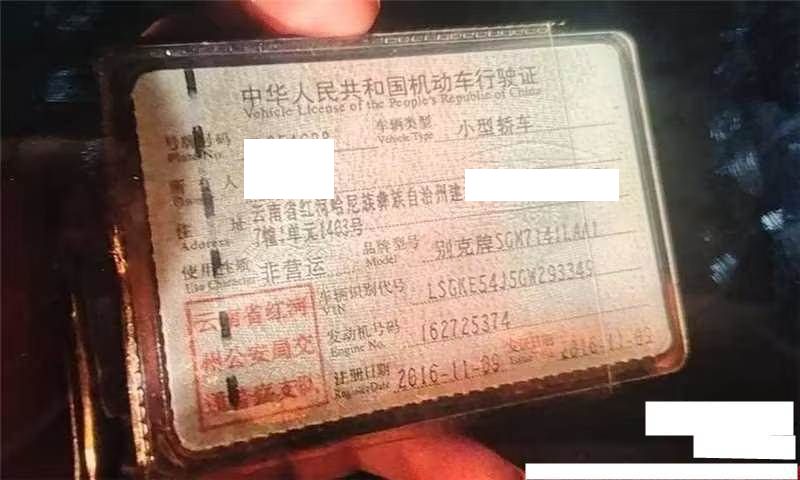 中华人民共和国机动车行驶证
Vehicle License of the People's Republic of China
号牌号码
Plate No.
车辆类型 小型轿车
Vehicle Type
所 人
住 址 云南省红河哈尼族彝族自治州建
Address 7幢1单元1403号
使用性质 非营运
Use Character
品牌型号 别克牌SGM7141LAA1
Model
车辆识别代号 LSGKE54J5GW293349
VIN
发动机号码 162725374
Engine No.
注册日期 2016-11-09
Register Date
2016-11-09
云南省红河
州公安局交
通警察支队